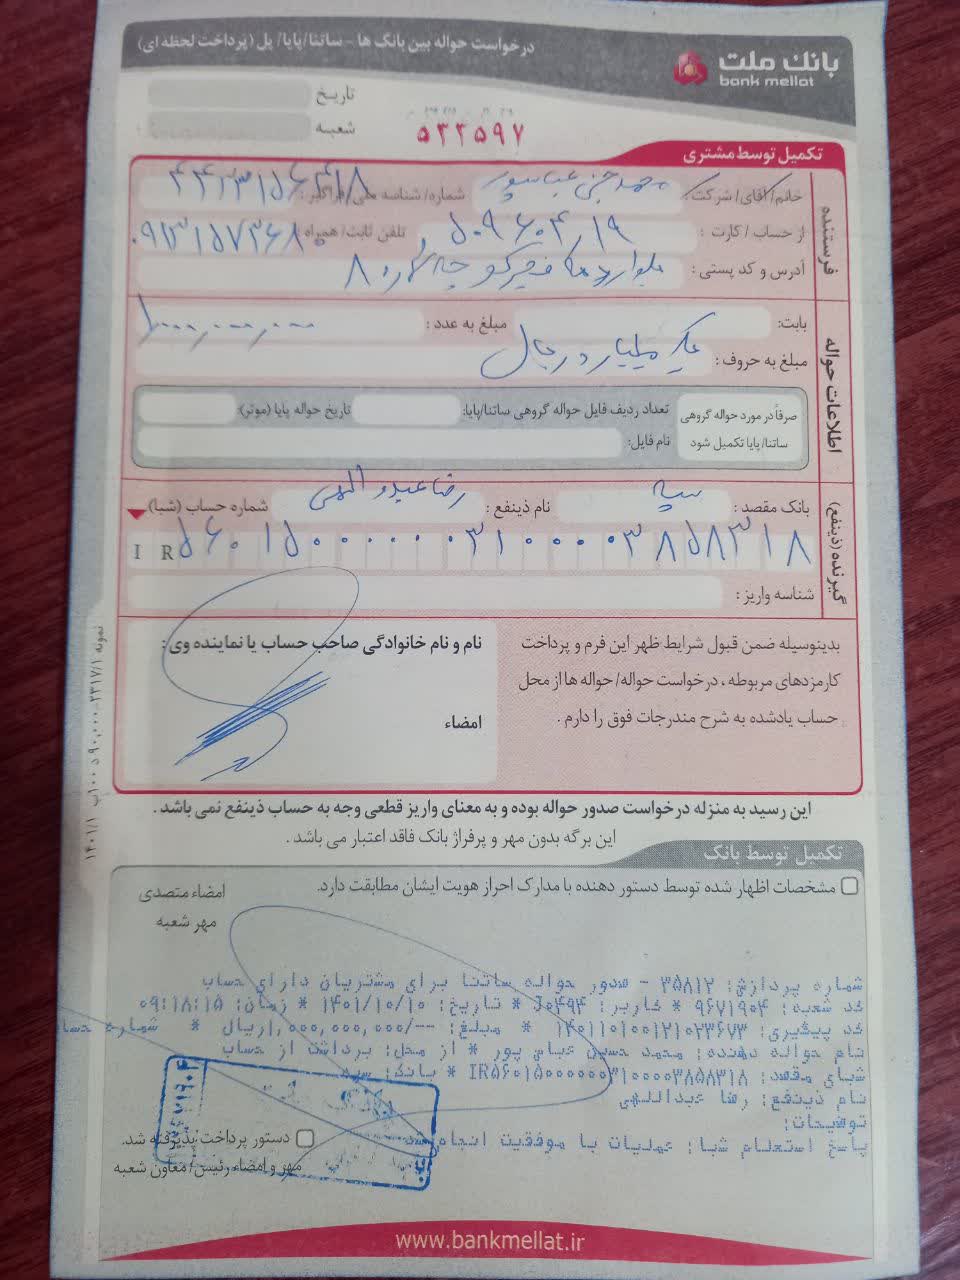 بانک ملت
bank mellat
درخواست حواله بین بانک ها - ساتنا/پایا/ پل (پرداخت لحظه ای)
تاریخ
شعبه
۵۲۲۵۹۷
تکمیل توسط مشتری
فرستنده
خانم/آقای/شرکت: محمد حسین عباسپور شماره/شناسه ملی/فراگیر:
از حساب / کارت : ۵۰۹۶۰۴۰۱۹ تلفن ثابت/ همراه: ۰۹۱۳۱۵۷۳۶۸۰
آدرس و کد پستی : بلوار
اطلاعات حواله
بابت: مبلغ به عدد : ۱۰۰۰,۰۰۰,۰۰۰
مبلغ به حروف : یک میلیارد ریال
صرفاً در مورد حواله گروهی ساتنا/پایا تکمیل شود
تعداد ردیف فایل حواله گروهی ساتنا/پایا: تاریخ حواله پایا (موثر):
نام فایل:
گیرنده (ذینفع)
بانک مقصد : سپه نام ذینفع : رضا عبداللهی شماره حساب (شبا):
I R ۵۶۰۱۵۰۰۰۰۰۰۰۳۱۰۰۰۰۳۸۵۸۳۱۸
شناسه واریز :
بدینوسیله ضمن قبول شرایط ظهر این فرم و پرداخت
کارمزدهای مربوطه ، درخواست حواله/ حواله ها از محل
حساب یادشده به شرح مندرجات فوق را دارم .
نام و نام خانوادگی صاحب حساب یا نماینده وی :
امضاء
این رسید به منزله درخواست صدور حواله بوده و به معنای واریز قطعی وجه به حساب ذینفع نمی باشد .
این برگه بدون مهر و پرفراژ بانک فاقد اعتبار می باشد .
تکمیل توسط بانک
مشخصات اظهار شده توسط دستور دهنده با مدارک احراز هویت ایشان مطابقت دارد.
امضاء متصدی
مهر شعبه
شماره پردازش: ۳۵۸۱۲ - صدور حواله ساتنا برای مشتریان دارای حساب
کد شعبه: ۹۶۷۱۹۰۴ * کاربر: J۵۴۹۴ * تاریخ: ۱۴۰۱/۱۰/۱۰ * زمان: ۰۹:۱۸:۱۵
کد پیگیری: ۱۴۰۱۱۰۱۰۰۱۲۱۰۲۳۶۷۳ * مبلغ: --/۱,۰۰۰,۰۰۰,۰۰۰ریال * شماره حسا
نام حواله دهنده: محمد حسین عباس پور * از محل: برداشت از حساب
شبای مقصد: IR۵۶۰۱۵۰۰۰۰۰۰۰۳۱۰۰۰۰۳۸۵۸۳۱۸ * بانک: سپه
نام ذینفع: رضا عبداللهی
توضیحات:
پاسخ استعلام شبا: عملیات با موفقیت انجام شد
دستور پرداخت پذیرفته شد.
مهر و امضاء رئیس/ معاون شعبه
www.bankmellat.ir